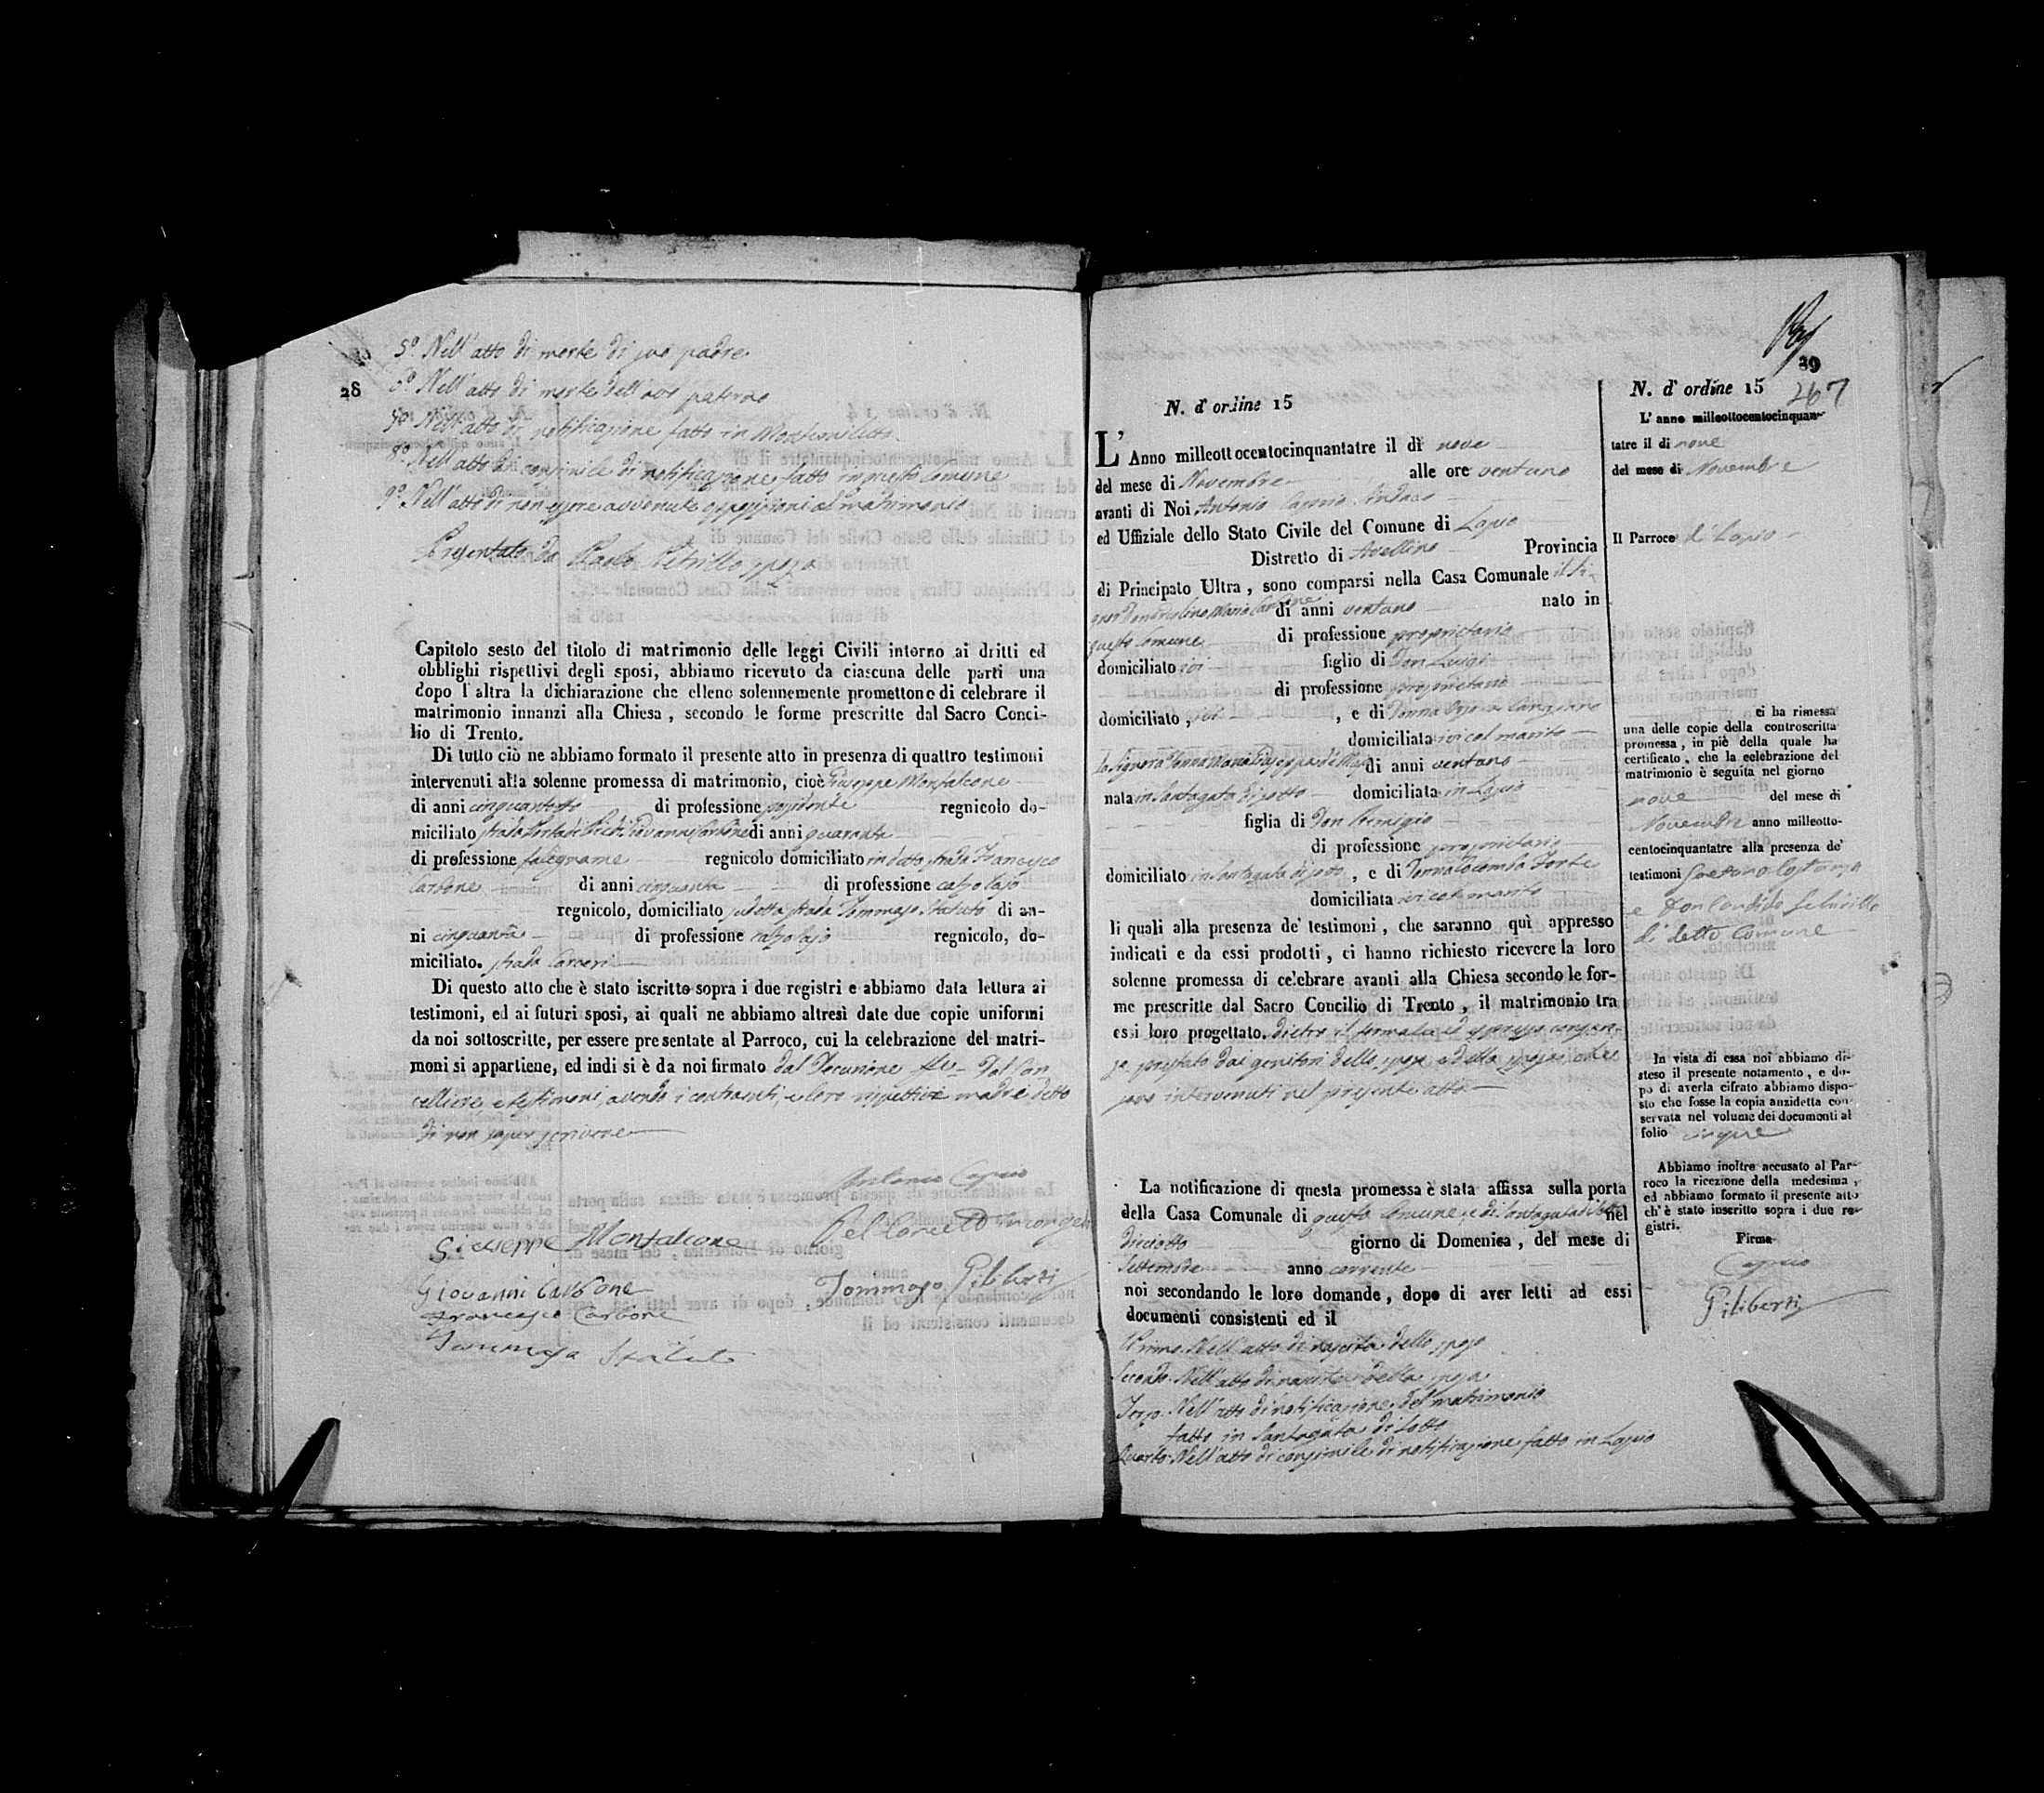 5º Nell'atto di morte di suo padre
28
6º Nell'atto di morte dell'avo paterno
7º Nell'atto di notificazione fatto in Montemiletto
8º Nell'atto di consimile di notificazione fatto in questo Comune
9º Nell'atto di non essere avvenute opposizioni al matrimonio
Presentato da Paolo Petrillo sposo
Capitolo sesto del titolo di matrimonio delle leggi Civili intorno ai dritti ed
obblighi rispettivi degli sposi, abbiamo ricevuto da ciascuna delle parti una
dopo l'altra la dichiarazione che elleno solennemente promettono di celebrare il
matrimonio innanzi alla Chiesa, secondo le forme prescritte dal Sacro Conci-
lio di Trento.
Di tutto ciò ne abbiamo formato il presente atto in presenza di quattro testimoni
intervenuti alla solenne promessa di matrimonio, cioè Giuseppe Monfalcone
di anni cinquantotto di professione regnicolo do-
miciliato strada Giovanni Carbone di anni quaranta
di professione falegname regnicolo domiciliato in detta strada Francesco
Carbone di anni cinquanta di professione calzolajo
regnicolo, domiciliato sudetta strada Tommaso di an-
ni cinquanta di professione calzolajo regnicolo, do-
miciliato. strada Carceri
Di questo atto che è stato iscritto sopra i due registri e abbiamo data lettura ai
testimoni, ed ai futuri sposi, ai quali ne abbiamo altresì date due copie uniformi
da noi sottoscritte, per essere presentate al Parroco, cui la celebrazione del matri-
moni si appartiene, ed indi si è da noi firmato dal Decurione dal Can
celliere, e testimoni, avendo i contraenti, e loro rispettive madre detto
di non saper scrivere
Antonio Caprio
Giuseppe Monfalcone
Giovanni Carbone
Tommaso Piliberti
Francesco Carbone
Tommaso
29
267
N. d'ordine 15
L'Anno milleottocentocinquantatre il dì nove
del mese di Novembre alle ore ventuno
avanti di Noi Antonio Caprio Sindaco
ed Uffiziale dello Stato Civile del Comune di Lapio
Distretto di Avellino Provincia
di Principato Ultra, sono comparsi nella Casa Comunale il Si-
gnor Don Maria Carbone di anni ventuno nato in
questo Comune di professione proprietario
domiciliato ivi figlio di Don Luigi
di professione proprietario
domiciliato, ivi , e di Donna
domiciliata ivi col marito
la Signora Donna Maria Giuseppa di anni ventuno
nata in Santagata di sotto domiciliata in Lapio
figlia di Don Remigio
di professione proprietario
domiciliato in Santagata di sotto, e di Donna Colomba Forte
domiciliata ivi col marito
li quali alla presenza de' testimoni, che saranno quì appresso
indicati e da essi prodotti, ci hanno richiesto ricevere la loro
solenne promessa di celebrare avanti alla Chiesa secondo le for-
me prescritte dal Sacro Concilio di Trento, il matrimonio tra
essi loro progettato. dietro il formale ed espresso consen-
so prestato dai genitori dello sposo e della sposa,
intervenuti nel presente atto
La notificazione di questa promessa è stata affissa sulla porta
della Casa Comunale di questo Comune, e di Santagata di sotto nel
dieciotto giorno di Domenica, del mese di
Settembre anno corrente
noi secondando le loro domande, dopo di aver letti ad essi
documenti consistenti ed il
Primo. Nell'atto di nascita dello sposo
Secondo. Nell'atto di nascita della sposa
Terzo. Nell'atto di notificazione del matrimonio
fatto in Santagata di Sotto
Quarto. Nell'atto di consimile di notificazione fatto in Lapio
N. d'ordine 15
L'anno milleottocentocinquan-
tatre il di nove
del mese di Novembre
Il Parroco di Lapio
ci ha rimessa
una delle copie della controscritta
promessa, in piè della quale ha
certificato, che la celebrazione del
matrimonio è seguita nel giorno
nove del mese di
Novembre anno milleotto-
centocinquantatre alla presenza de'
testimoni Gaetano Costanza
e Don Candido
di detto Comune
In vista di essa noi abbiamo di-
steso il presente notamento, e do-
po di averla cifrato abbiamo dispo-
sto che fosse la copia anzidetta con-
servata nel volume dei documenti al
folio cinque
Abbiamo inoltre accusato al Par-
roco la ricezione della medesima,
ed abbiamo formato il presente atto
ch'è stato inscritto sopra i due re-
gistri.
Firma
Caprio
Piliberti